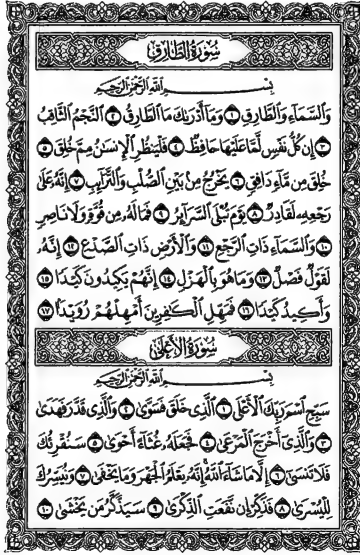 سُورَةُ الطَّارِقِ
بِسْمِ اللَّهِ الرَّحْمَٰنِ الرَّحِيمِ
وَالسَّمَاءِ وَالطَّارِقِ ١ وَمَا أَدْرَاكَ مَا الطَّارِقُ ٢ النَّجْمُ الثَّاقِبُ
٣ إِن كُلُّ نَفْسٍ لَّمَّا عَلَيْهَا حَافِظٌ ٤ فَلْيَنظُرِ الْإِنسَانُ مِمَّ خُلِقَ ٥
خُلِقَ مِن مَّاءٍ دَافِقٍ ٦ يَخْرُجُ مِن بَيْنِ الصُّلْبِ وَالتَّرَائِبِ ٧ إِنَّهُ عَلَىٰ
رَجْعِهِ لَقَادِرٌ ٨ يَوْمَ تُبْلَى السَّرَائِرُ ٩ فَمَا لَهُ مِن قُوَّةٍ وَلَا نَاصِرٍ
١٠ وَالسَّمَاءِ ذَاتِ الرَّجْعِ ١١ وَالْأَرْضِ ذَاتِ الصَّدْعِ ١٢ إِنَّهُ
لَقَوْلٌ فَصْلٌ ١٣ وَمَا هُوَ بِالْهَزْلِ ١٤ إِنَّهُمْ يَكِيدُونَ كَيْدًا ١٥
وَأَكِيدُ كَيْدًا ١٦ فَمَهِّلِ الْكَافِرِينَ أَمْهِلْهُمْ رُوَيْدًا ١٧
سُورَةُ الْأَعْلَىٰ
بِسْمِ اللَّهِ الرَّحْمَٰنِ الرَّحِيمِ
سَبِّحِ اسْمَ رَبِّكَ الْأَعْلَى ١ الَّذِي خَلَقَ فَسَوَّىٰ ٢ وَالَّذِي قَدَّرَ فَهَدَىٰ
٣ وَالَّذِي أَخْرَجَ الْمَرْعَىٰ ٤ فَجَعَلَهُ غُثَاءً أَحْوَىٰ ٥ سَنُقْرِئُكَ
فَلَا تَنسَىٰ ٦ إِلَّا مَا شَاءَ اللَّهُ إِنَّهُ يَعْلَمُ الْجَهْرَ وَمَا يَخْفَىٰ ٧ وَنُيَسِّرُكَ
لِلْيُسْرَىٰ ٨ فَذَكِّرْ إِن نَّفَعَتِ الذِّكْرَىٰ ٩ سَيَذَّكَّرُ مَن يَخْشَىٰ ١٠